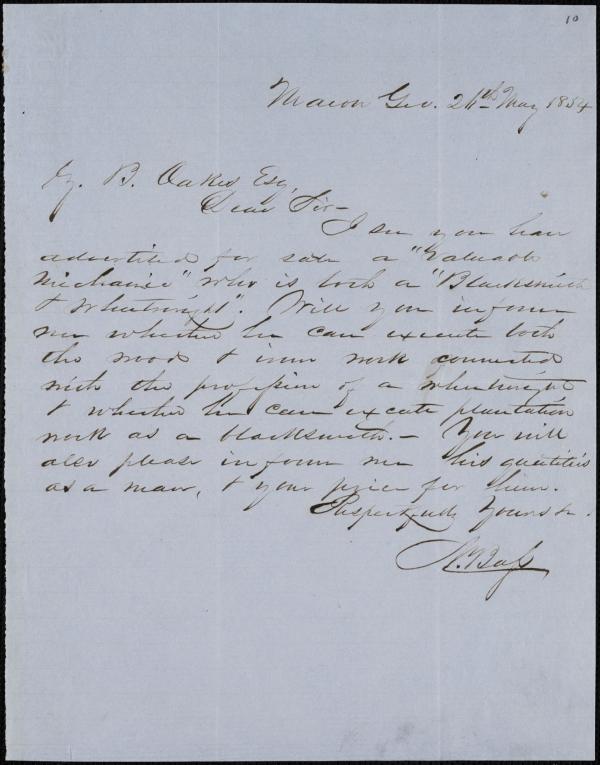 10
Macon Geo. 26th May 1854
Z. B. Oakes Esq,
Dear Sir -
I see you have
advertised for sale a "Valuable
Mechanic" who is both a "Blacksmith
& wheelwright". Will you inform
me whether he can execute both
the wood & iron work connected
with the profession of a wheelwright
& whether he can excute plantation
work as a blacksmith. - You will
also please inform me his qualities
as a man, & your price for him.
Respectfully Yours &c.
Bass